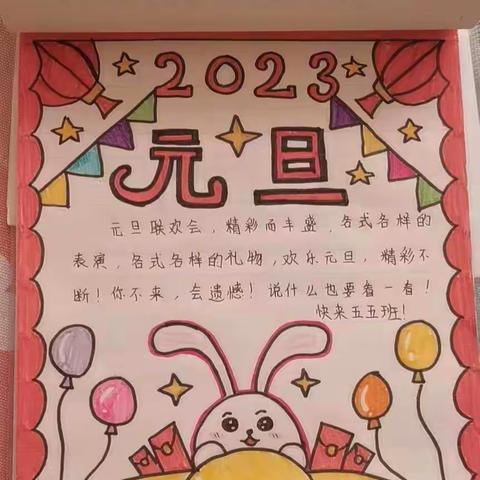 2023
元旦
元旦联欢会，精彩而丰盛，各式各样的
表演，各式各样的礼物，欢乐元旦，精彩不
断！你不来，会遗憾！说什么也要看一看！
快来五五班！